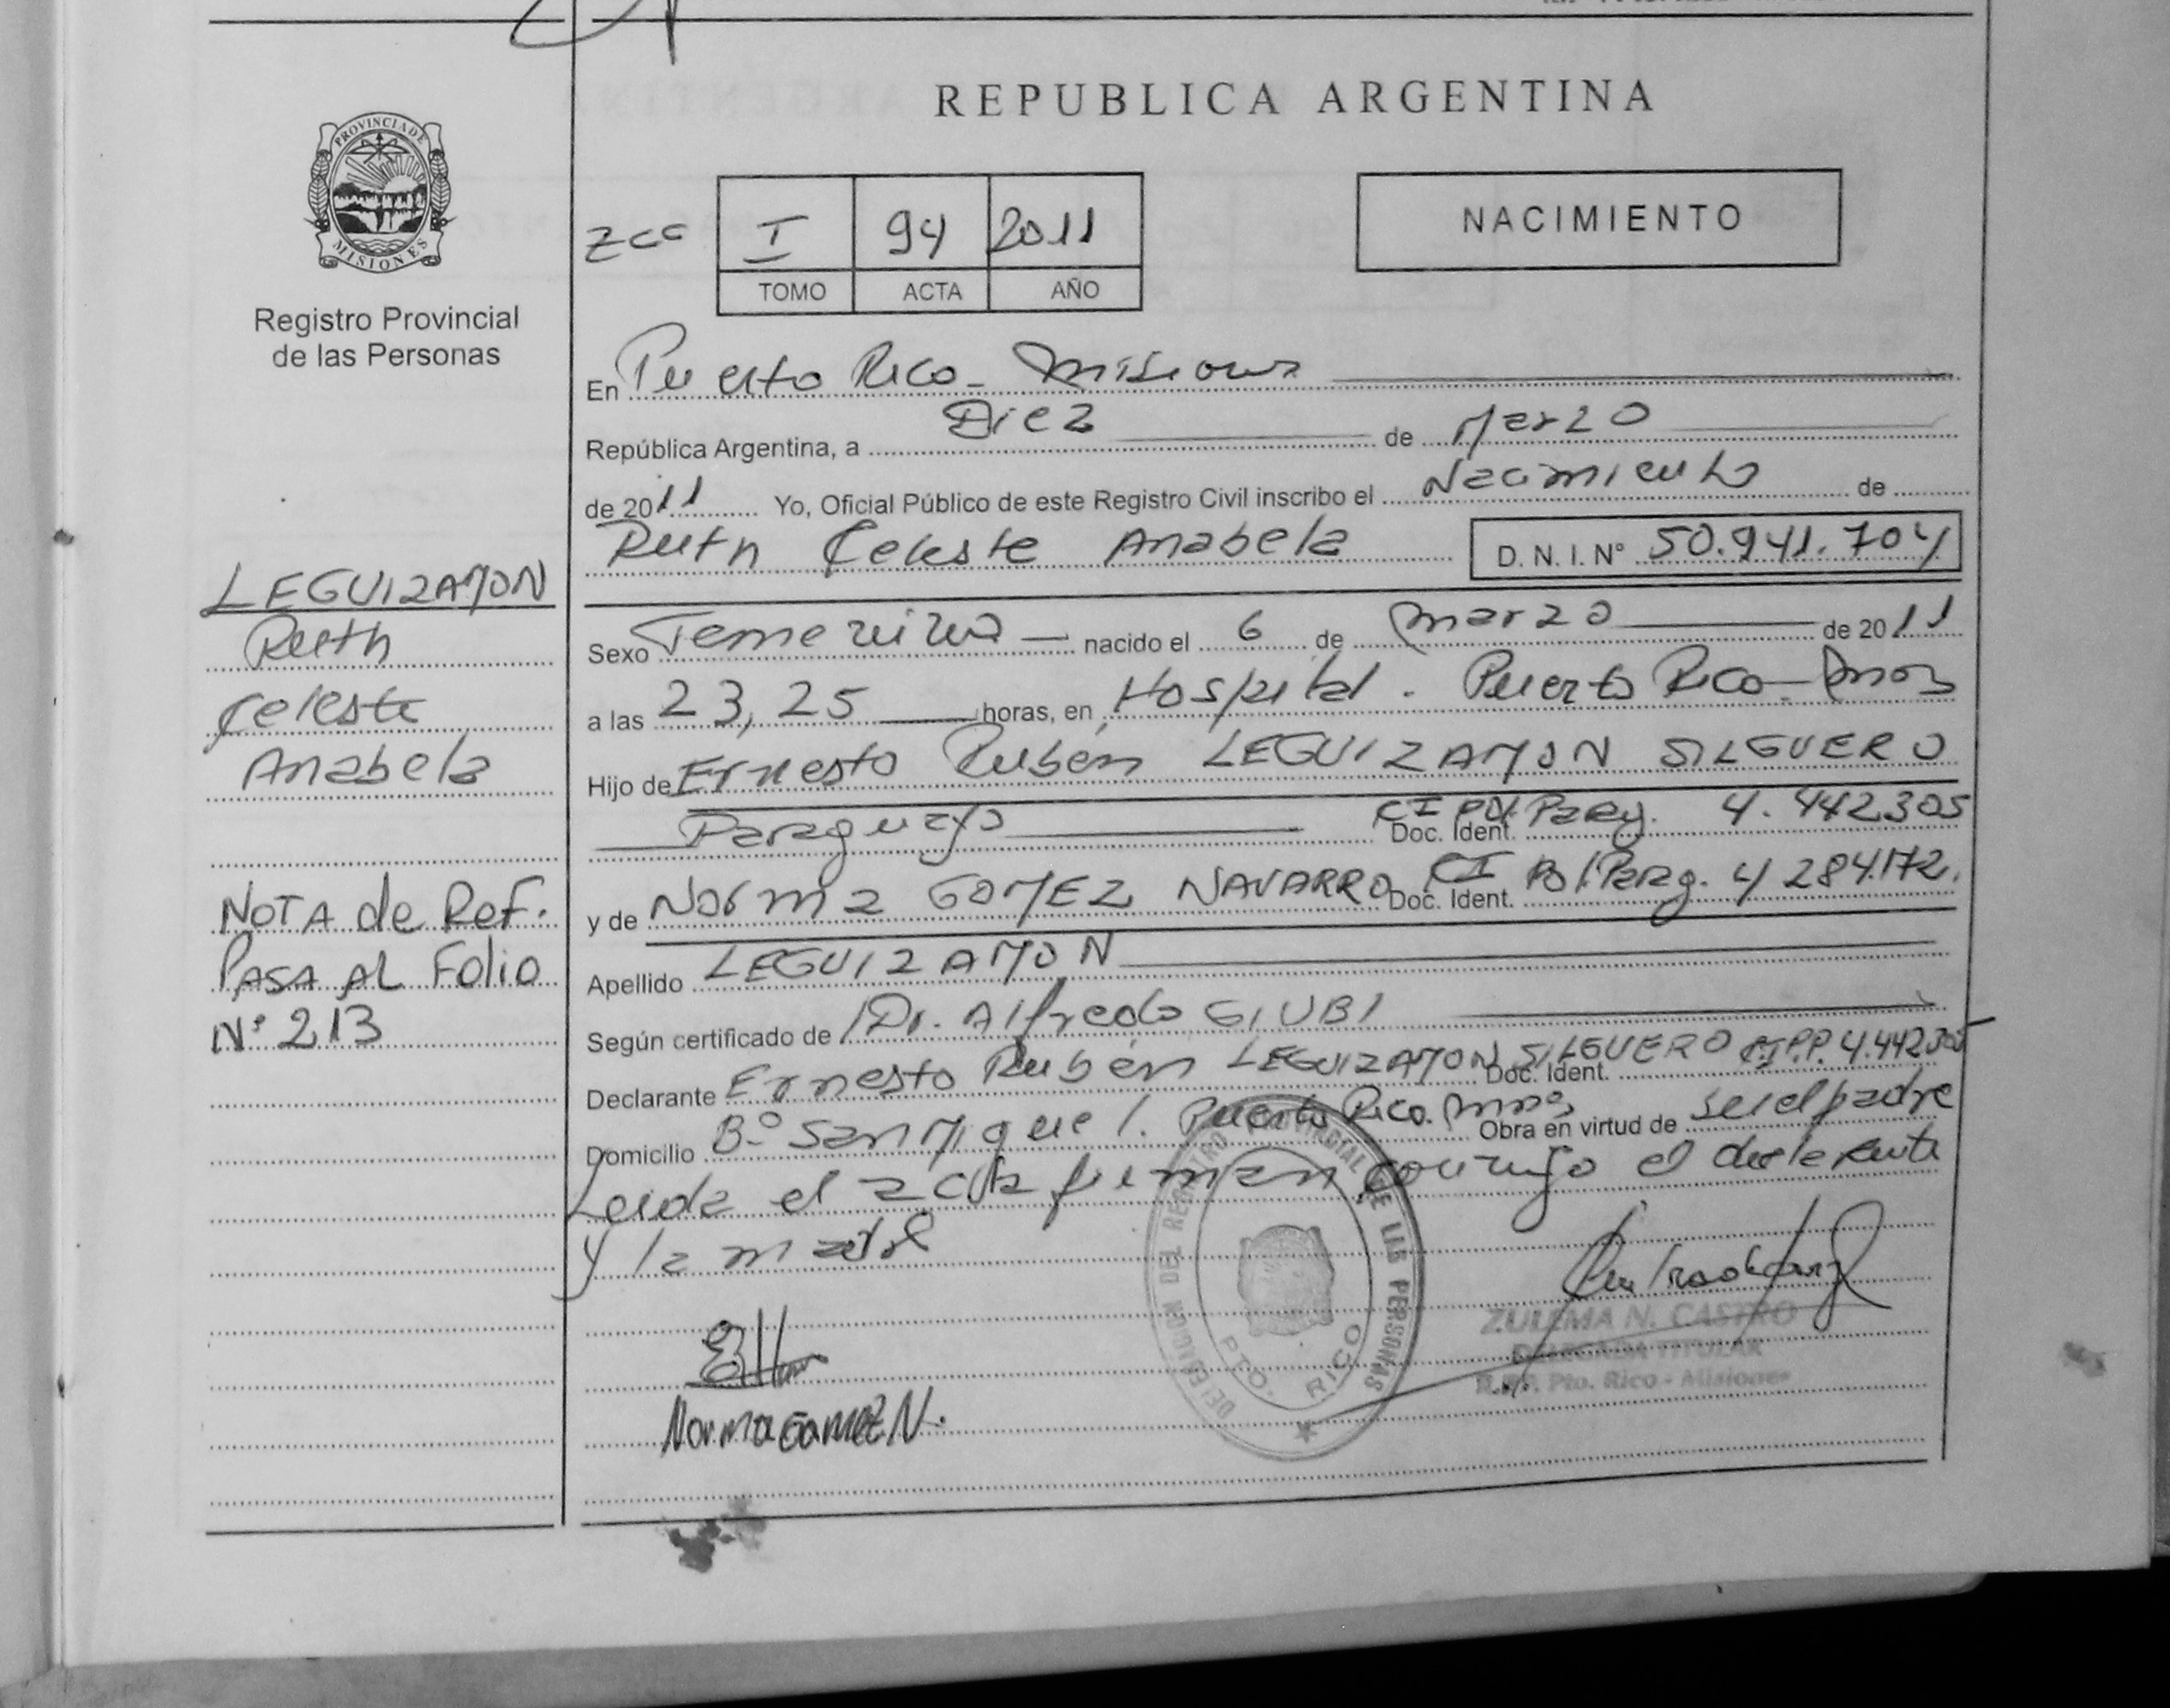 REPUBLICA ARGENTINA
PROVINCIA DE
MISIONES
Registro Provincial
de las Personas
I 94 2011
TOMO ACTA AÑO
NACIMIENTO
En Puerto Rico - Misiones
República Argentina, a Diez de Marzo
de 2011 Yo, Oficial Público de este Registro Civil inscribo el Nacimiento de
Ruth Celeste Anabela D. N. I. N° 50.941.704
LEGUIZAMON
Ruth
Celeste
Anabela
Sexo Femenino nacido el 6 de marzo de 2011
a las 23,25 horas, en Hospital. Puerto Rico - Mnes
Hijo de Ernesto Rubén LEGUIZAMON SILGUERO
Paraguayo Doc. Ident. CI Pol. Parag. 4.442.305
y de Norma GOMEZ NAVARRO Doc. Ident. CI Pol. Parag. 4284.172.
NOTA de Ref.
PASA AL Folio
N° 213
Apellido LEGUIZAMON
Según certificado de Dr. Alfredo GIUBI
Declarante Ernesto Rubén LEGUIZAMON SILGUERO Doc. Ident. C.I.P.P. 4.442.305
Domicilio B° San Miguel. Puerto Rico. Mnes Obra en virtud de ser el padre
Leida el acta firman conmigo el declarante
y la madre
DELEGACION DEL REGISTRO PROVINCIAL DE LAS PERSONAS
PTO. RICO
ZULEMA N. CASTRO
DELEGADA TITULAR
R.P.P. Pto. Rico - Misiones
Norma Gomez N.